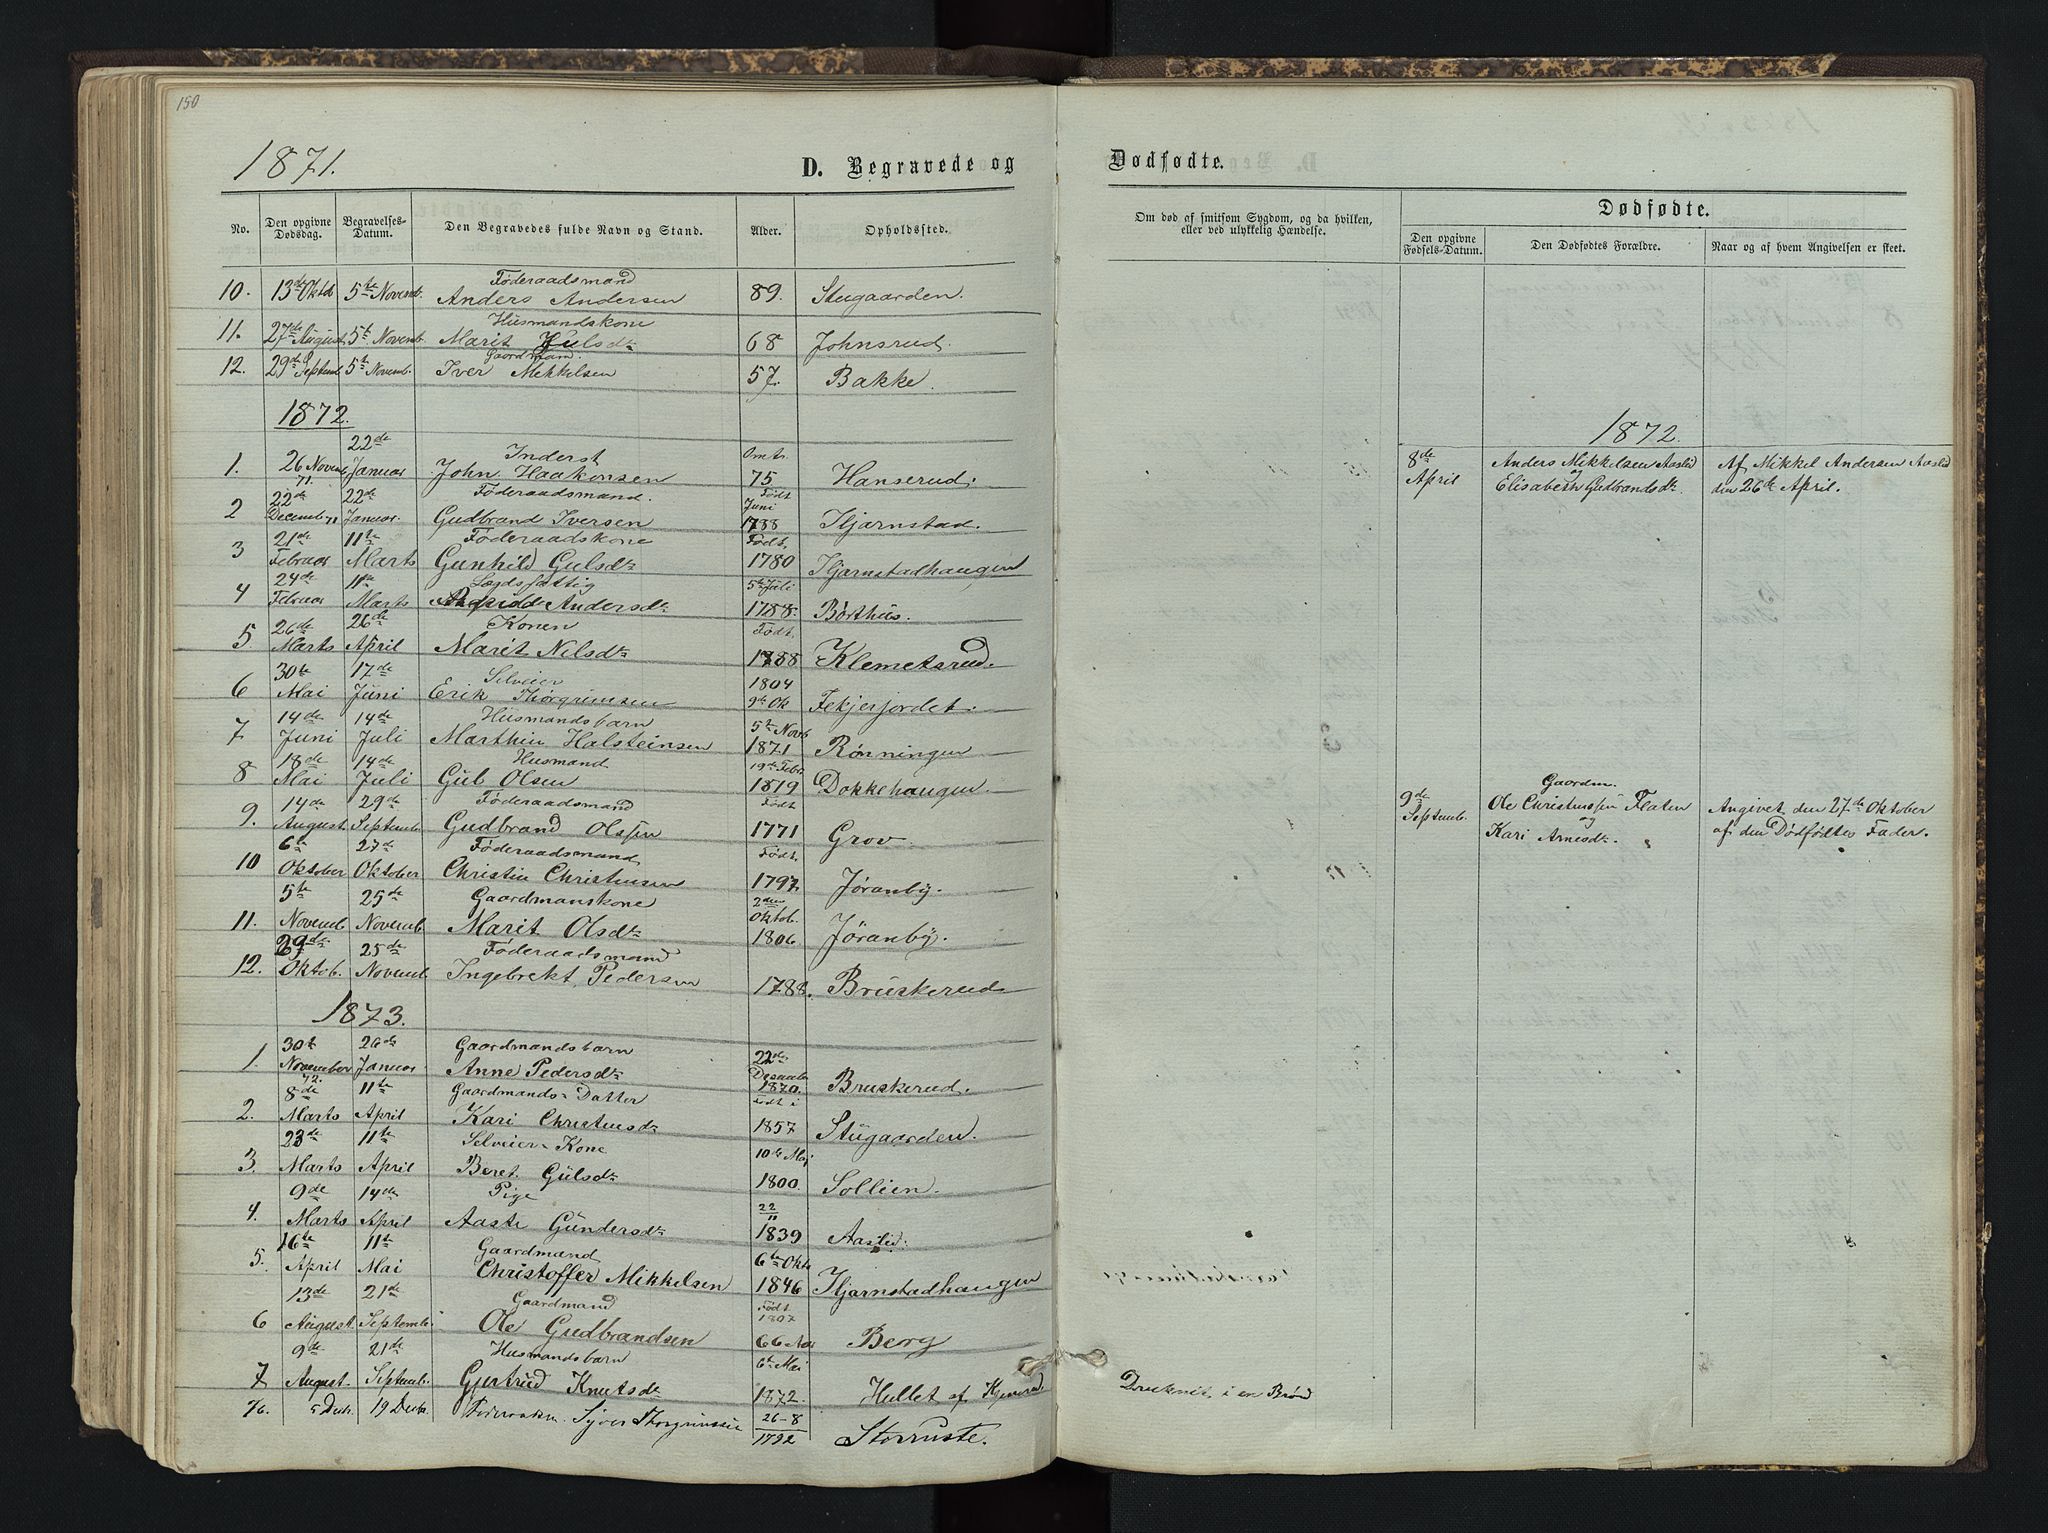 150
1871.
D. Begravede og
Dødfødte.
No.
Den opgivne Dødsdag.
Begravelses-Datum.
Den Begravedes fulde Navn og Stand.
Alder.
Opholdssted.
Om død af smitsom Sygdom, og da hvilken, eller ved ulykkelig Hændelse.
Dødfødte.
Den opgivne Fødsels-Datum.
Den Dødfødtes Forældre.
Naar og af hvem Angivelsen er skeet.
Føderaadsmand
10. 13de Oktb 5te Novemb. Anders Andersen 89. Stugaarden.
Husmandskone
11. 27de August 5t Novemb Marit Gulsdt 68 Johnsrud.
Gaardmand.
12. 29de Septemb 5t Novemb. Iver Mekkelsen 57. Bakke.
1872.
22de Inderst Omtr.
1. 26 Novemb. 71. Januar John Haakonsen 75 Hanserud.
22de 22de Føderaadsmand. Født Juni
2 Decemb. 71 Januar. Gudbrand Iversen 1788 Hjarnstad.
21de 11te Føderaadskone Født.
3 Februar Marts Gunhild Gulsdt 1780 Hjarnstadhaugen
24de 11te Lægdsfattig 5te Juli
4 Februar Marts Andersdt 1788. Børthus.
26de 26de Konen Født.
5 Marts April Marit Nilsdt 1788 Klemetsrud.
30te 17de Selveier 1804
6 Mai Juni Erik Thorgrimsen 9de Ok Fekjerjordet.
14de 14de Husmandsbarn 5te Novb
7 Juni Juli Marthin Halsteinsen 1871 Rønningen
18de 14de Husmand 19de Febr
8 Mai Juli Gul Olsen 1819 Dokkehaugen.
14de 29de Føderaadsmand Født
9. August Septemb. Gudbrand Olssen 1771 Grov
6te 27de Føderaadsmand Født.
10 Oktober Oktober Christen Christensen 1797. Jøranby.
5te 25de Gaardmanskone 2den Oktob.
11. Novemb Novemb. Marit Olsdt 1806 Jøranby.
29de 25de Føderaadsmand
12. Oktob. Novemb. Ingebrekt Pedersen 1788. Bruskerud
1873.
30te 26de Gaardmandsbarn 22de
1. November 72. Januar. Anne Pedersdt Decemb 1870. Bruskerud.
8de 11te Gaardmands-Datter Født i
2. Marts April Kari Christensdt 1857 Stugaarden.
23de 11te Selveier-Kone 10de Maj
3. Marts April Beret Gulsdt 1800 Sollien.
9de 14de Pige 22/11
4. Marts April Aaste Gundersdt 1839 Aaslid.
16te 11te Gaardmand 6te Oktb
5. April Mai Christoffer Mikkelsen 1846 Hjarnstadhaugen
13de 21de Gaardmand Født 1807
6 August Septemb. Ole Gudbrandsen 66 Aar Berg
9de 21de Husmandsbarn 6te Mai
7 August Septemb. Gjertrud Knutsdt 1872. Hullet af
5 Decb. 19 Decb. Syver Thorgrimsen 26-8 1792 Storruste.
1872.
8de April
Anders Mikkelsen Aaslid
og
Elisabeth Gudbrandsdt.
Af Mikkel Andersen Aaslid
den 26de April.
9de Septemb.
Gaardm.
Ole Christenssen Flaten
og
Kari Arnesdt.
Angivet den 27de Oktober
af den Dødfødtes Fader.
Druknet i en Brønd